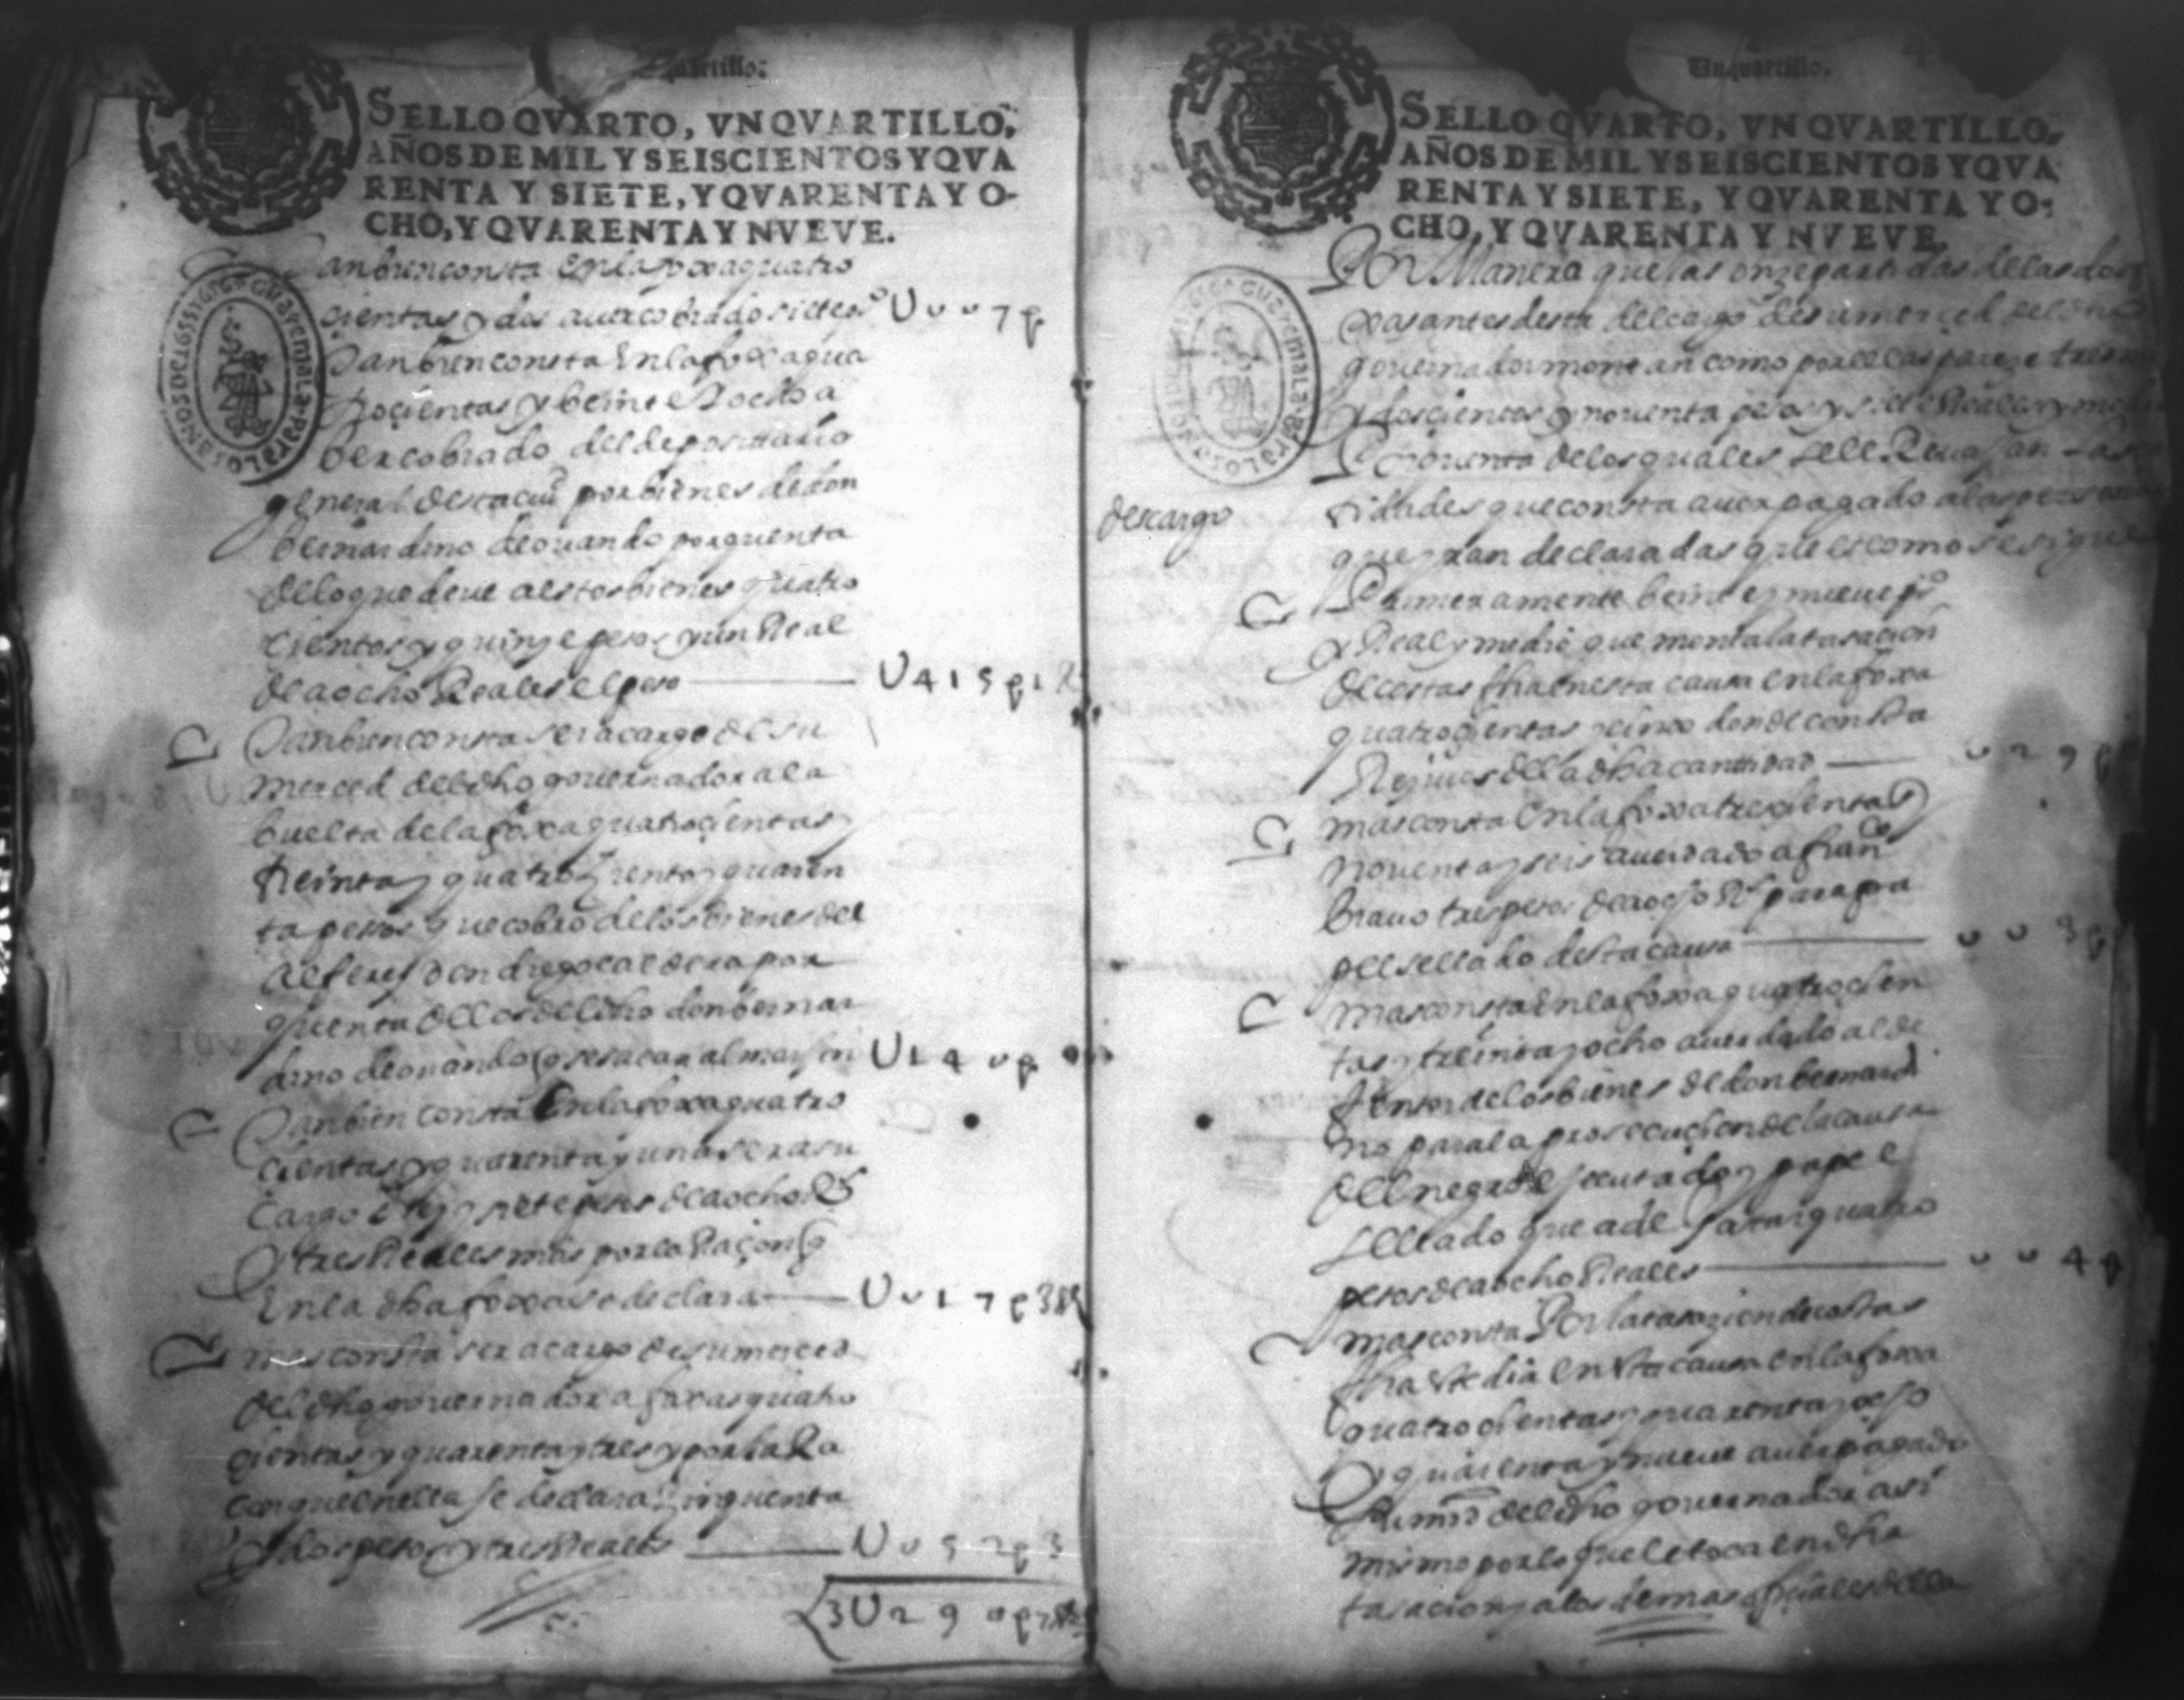 quartillo:
SELLO QVARTO, VN QVARTILLO,
AÑOS DE MIL Y SEISCIENTOS Y QVA
RENTA Y SIETE, Y QVARENTA Y O-
CHO, Y QVARENTA Y NVEVE.
Tanbien consta en la foxa quatro
cientas y dos auer cobrado siete ps U u u 7 p
Tanbien consta en la foxa qua
trocientas y beinte y ocho a
ber cobrado del depositario
general desta ciud por bienes de don
bernardino de ouando por quenta
de lo que deue a estos bienes quatro
cientos y quinze pesos y un Real
de a ocho Reales el peso U 4 1 5 p 1 R
Tanbien consta ser a cargo de su
merced del dho gouernador a la
buelta de la foxa quatrocientas y
treinta y quatro ziento y quaren
ta pesos que cobro de los bienes del
alferes don diego caldera por
quenta de los del dho don bernar
dino de ouando q se sacan al marjen U 1 4 u p
Tanbien consta en la foxa quatro
cientas y quarenta y una ser a su
cargo diez y siete pesos de a ocho Rs
y tres Reales mas por la Raçon q
en la dha foxa se declara U u 1 7 p 3 Rs
mas consta ser a cargo de su merced
del dho gouernador a foxas quatro
cientas y quarenta y tres y por la Ra
çon que en ella se declara zinquenta
y dos pesos y tres Reales U u 5 2 p 3
3 U 2 9 0 p 7 Rs
Vn quartillo.
SELLO QVARTO, VN QVARTILLO,
AÑOS DE MIL Y SEISCIENTOS Y QVA
RENTA Y SIETE, Y QVARENTA Y O-
CHO, Y QVARENTA Y NVEVE.
Por Manera que las onze partidas de las dos
foxas antes desta del cargo de su merced del dho
gouernador montan como por ellas pareze tres mil
y doscientos y nouenta pesos y siete Reales y medio
Por quenta de los quales se le Reuajan las
descargo
tidades que consta auer pagado a las personas
que yran declaradas que es como se sigue
Primeramente beinte y nueue ps
y Real y medio que monta la tasacion
de costas fha en esta causa en la foxa
quatrocientas y cinco donde consta
Reciuos de la dha cantidad u 2 9 p
mas consta en la foxa trescientas
nouenta y seis auer dado a franco
brauo tres pesos de a ocho Rs para pa
pel sellado desta causa u u 3 p
mas consta en la foxa quatrocien
tas y treinta y ocho auer dado al de
fensor de los bienes de don bernardi
no para la prosecucion de la causa
del negro executado y papel
sellado que a de gastar quatro
pesos de a ocho Reales u u 4 p
mas consta Por la tasazion de costas
fha este dia en esta causa en la foxa
quatrocientas y quarenta y ocho
y quarenta y nueue auer pagado
su md del dho gouernador a si
mismo por lo que le toca en dha
tasacion y a los demas ofiçiales della